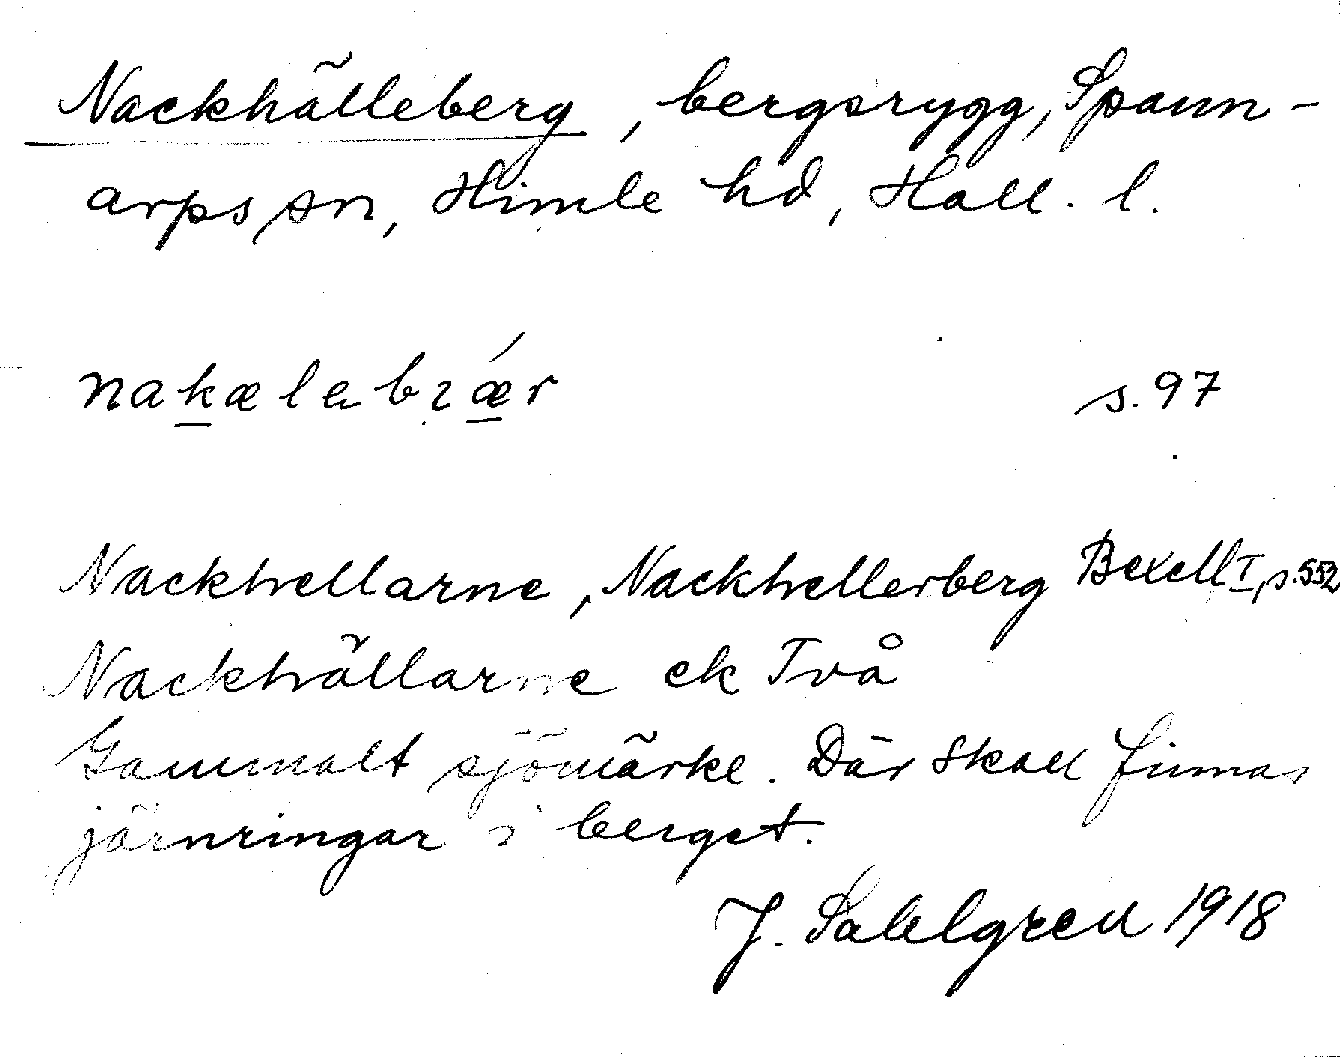 Nackhälleberg, bergsrygg, Spann-
arps sn, Himle hd, Hall. l.
nakælabrǽr s. 97
Nackhellarne, Nackhellerberg Bexell I, s. 552
Nackhällarne ek Två
Gammalt sjömärke. Där skall finnas
järnringar i berget.
J. Sahlgren 1918